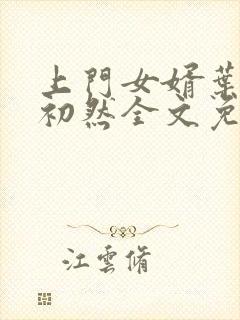 上門女婿葉
初然全文免
江雲脩